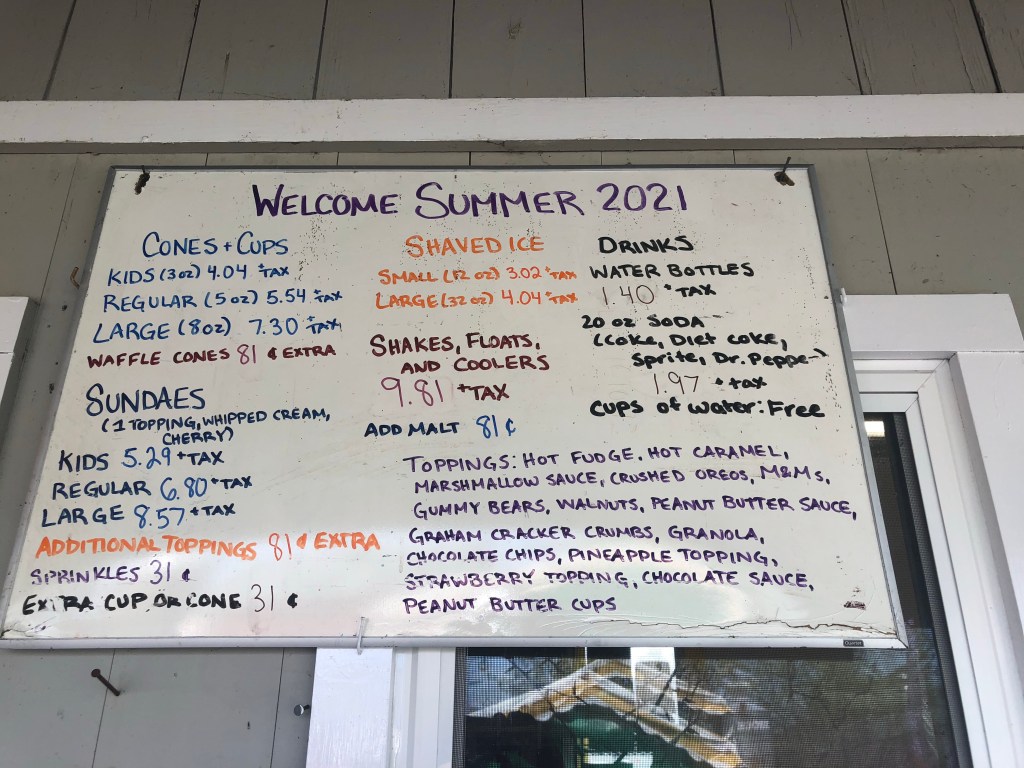 WELCOME SUMMER 2021
CONES + CUPS
KIDS (3 oz) 4.04 + TAX
REGULAR (5 oz) 5.54 + TAX
LARGE (8oz) 7.30 + TAX
WAFFLE CONES 81 ¢ EXTRA
SUNDAES
(1 TOPPING, WHIPPED CREAM,
CHERRY)
KIDS 5.29 + TAX
REGULAR 6.80 + TAX
LARGE 8.57 + TAX
ADDITIONAL TOPPINGS 81 ¢ EXTRA
SPRINKLES 31 ¢
EXTRA CUP OR CONE 31 ¢
SHAVED ICE
SMALL (12 oz) 3.02 + TAX
LARGE (32 oz) 4.04 + TAX
SHAKES, FLOATS,
AND COOLERS
9.81 + TAX
ADD MALT 81 ¢
DRINKS
WATER BOTTLES
1.40 + TAX
20 oz SODA
(Coke, Diet coke,
Sprite, Dr. Pepper)
1.97 + tax
cups of water: Free
TOPPINGS: HOT FUDGE, HOT CARAMEL,
MARSHMALLOW SAUCE, CRUSHED OREOS, M&Ms,
GUMMY BEARS, WALNUTS, PEANUT BUTTER SAUCE,
GRAHAM CRACKER CRUMBS, GRANOLA,
CHOCOLATE CHIPS, PINEAPPLE TOPPING,
STRAWBERRY TOPPING, CHOCOLATE SAUCE,
PEANUT BUTTER CUPS